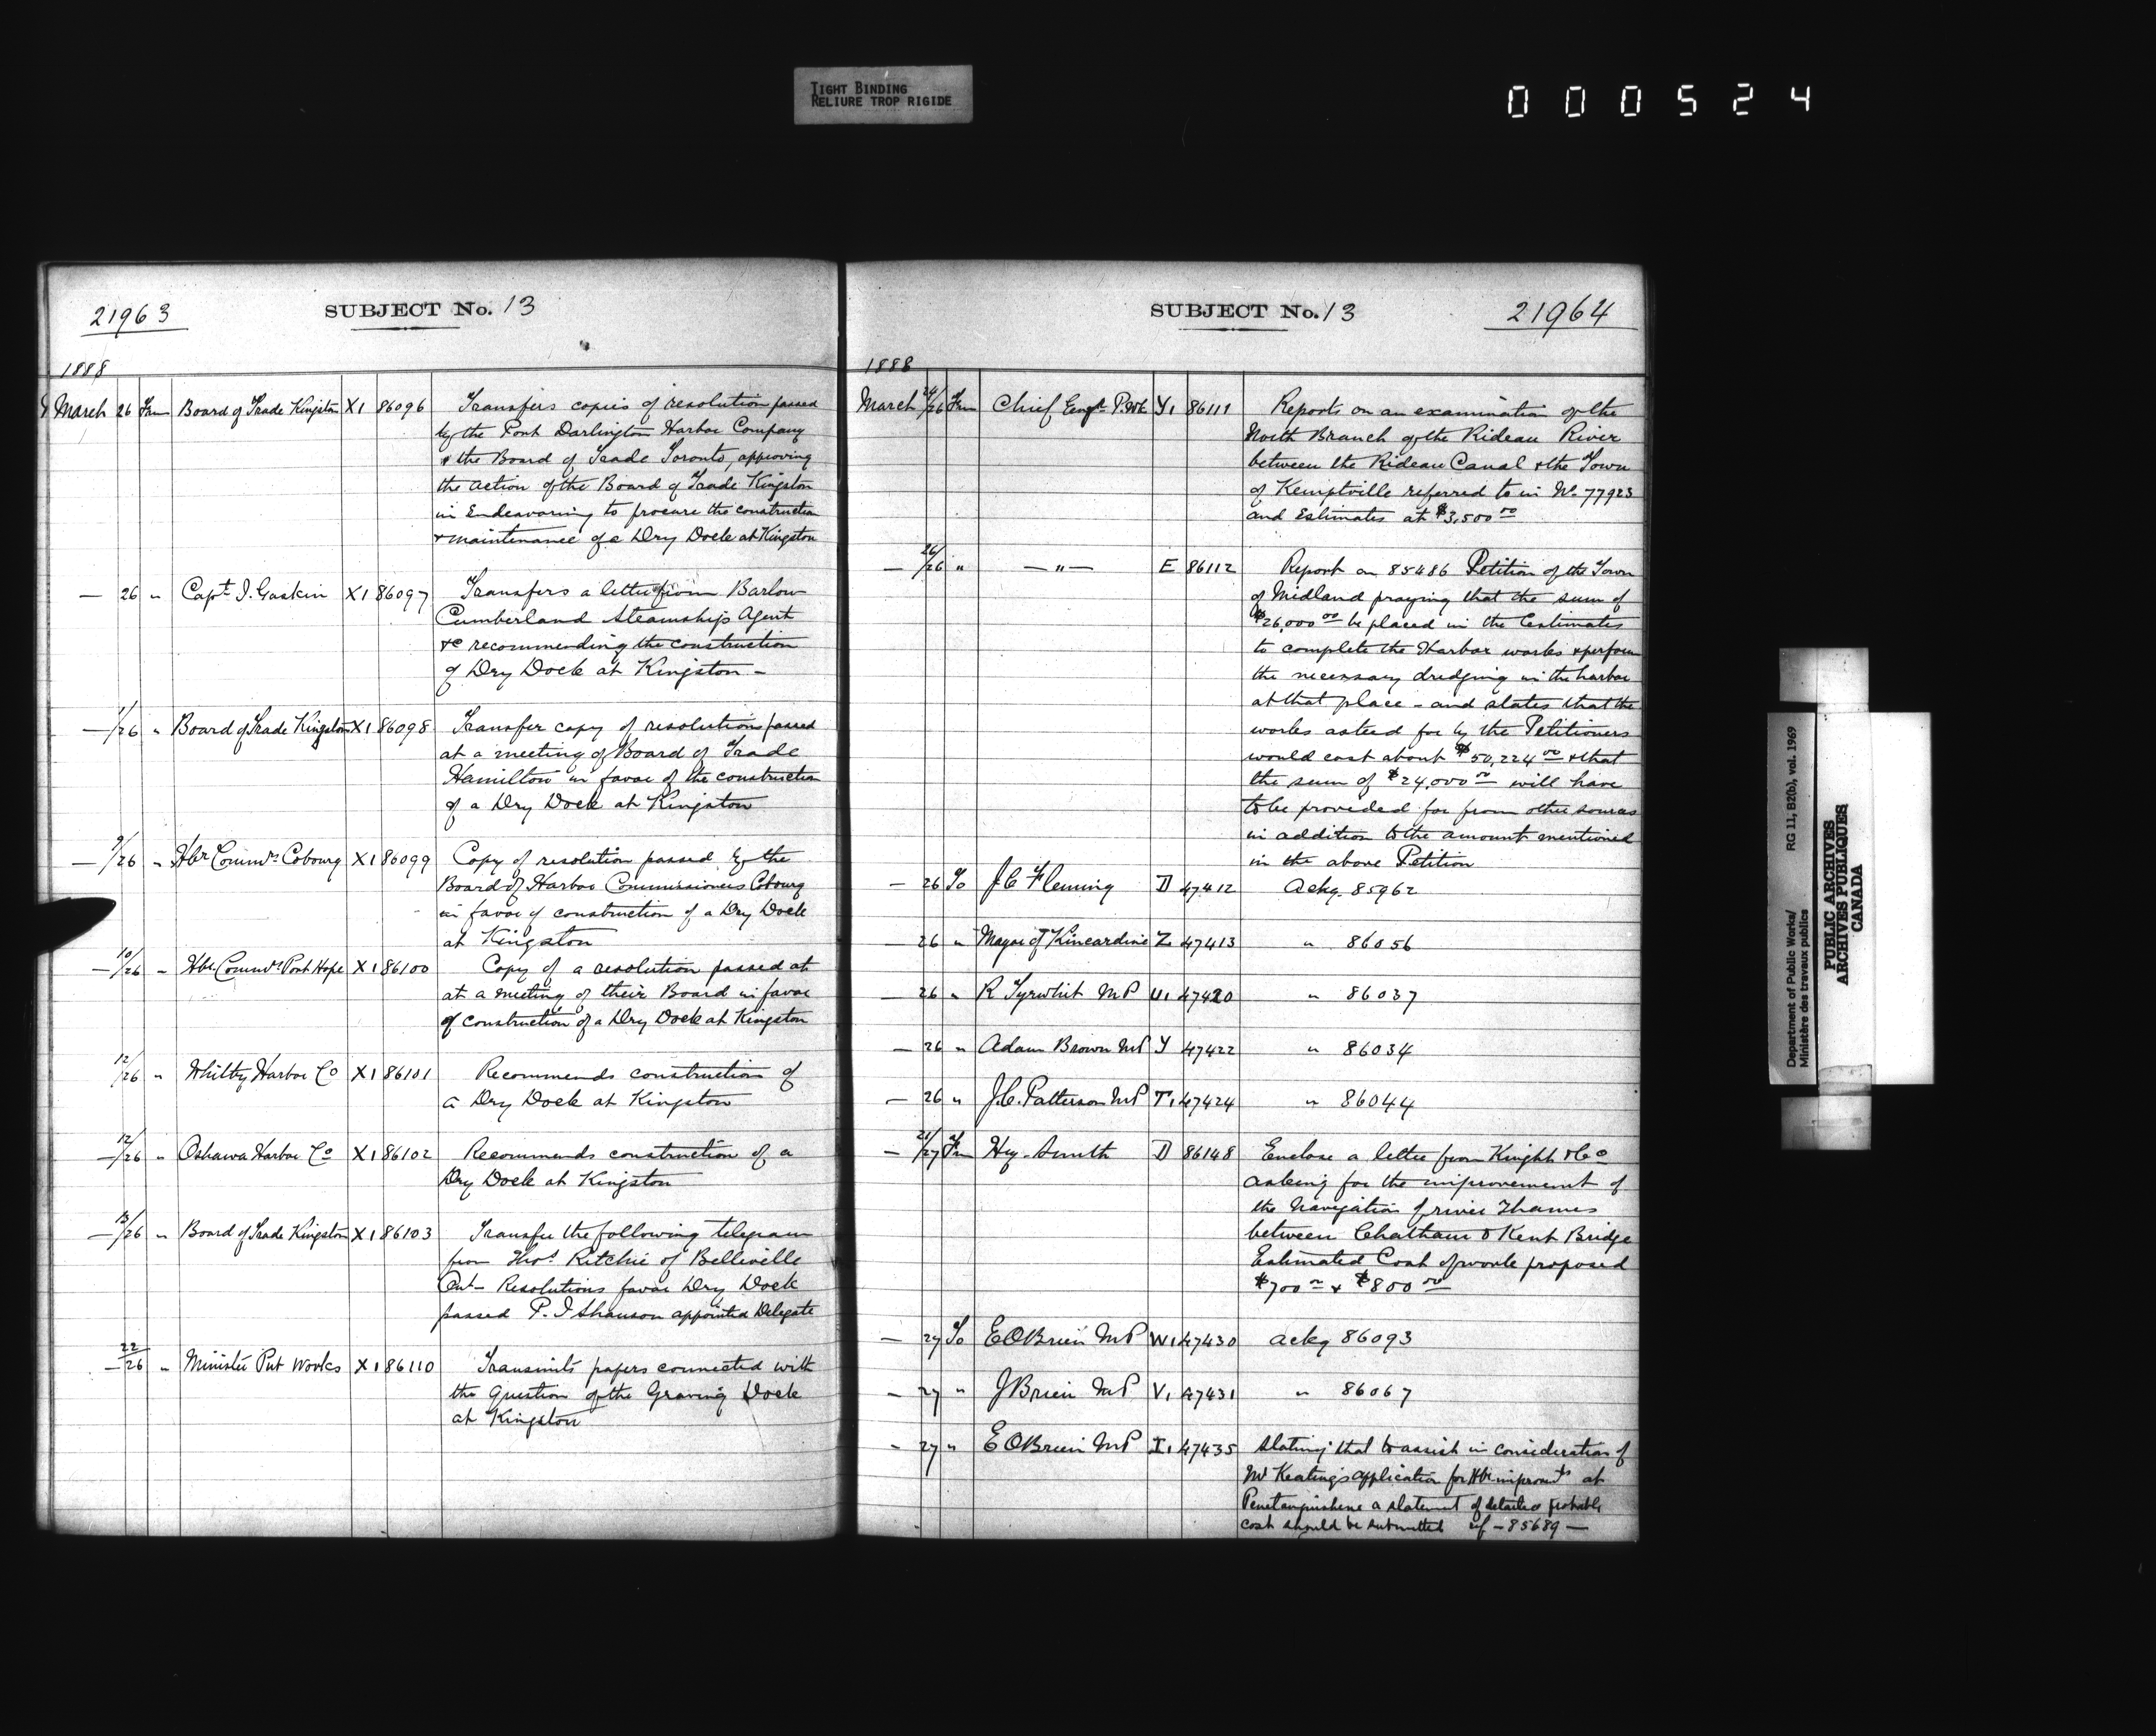 TIGHT BINDING
RELIURE TROP RIGIDE
000524
21963
SUBJECT No. 13
1888
March 26 Frm Board of Trade Kingston X1 86096 Transfers copies of resolution passed
by the Port Darlington Harbor Company
& the Board of Trade Toronto, approving
the action of the Board of Trade Kingston
in Endeavoring to procure the construction
& maintenance of a Dry Dock at Kingston
— 26 " Capt. J. Gaskin X1 86097 Transfers a letter from Barlow
Cumberland Steamship Agent
&c recommending the construction
of Dry Dock at Kingston —
— 1/26 " Board of Trade Kingston X1 86098 Transfer copy of resolutions passed
at a meeting of Board of Trade
Hamilton in favor of the construction
of a Dry Dock at Kingston
— 9/26 " Hbr Commrs Cobourg X1 86099 Copy of resolution passed by the
Board of Harbor Commissioners Cobourg
in favor of construction of a Dry Dock
at Kingston
— 10/26 " Hbr. Commrs Port Hope X1 86100 Copy of a resolution passed at
at a meeting of their Board in favor
of construction of a Dry Dock at Kingston
12/26 " Whitby Harbor Co X1 86101 Recommends construction of
a Dry Dock at Kingston
— 12/26 " Oshawa Harbor Co X1 86102 Recommends construction of a
Dry Dock at Kingston
— 13/26 " Board of Trade Kingston X1 86103 Transfer the following telegram
from Thos. Ritchie of Belleville
Ont — Resolutions favor Dry Dock
passed P. J Shannon appointed Delegate
— 22/26 " Minister Pub Works X1 86110 Transmits papers connected with
the Question of the Graving Dock
at Kingston
SUBJECT No. 13
21964
1888
March 24/26 Frm Chief Engr. P.Wk Y1 86111 Reports on an examination of the
North Branch of the Rideau River
between the Rideau Canal & the Town
of Kemptville referred to in No. 77923
and Estimates at $3,500 00
— 26/26 " — " — E 86112 Report on 85486 Petition of the Town
of Midland praying that the sum of
$26,000 00 be placed in the Estimates
to complete the Harbor works & perform
the necessary dredging in the harbor
at that place — and states that the
works asked for by the Petitioners
would cost about $50,224 00 & that
the sum of $24,000 00 will have
to be provided for from other sources
in addition to the amount mentioned
in the above Petition
— 26 To J.C Fleming D 47412 Ackg. 85962
— 26 " Mayor of Kincardine Z 47413 " 86056
— 26 " R Tyrwhit M P U1 47420 " 86037
— 26 " Adam Brown M P Y 47422 " 86034
— 26 " J.C. Patterson M P T1 47424 " 86044
— 21/27 Frm Hy. Smith D 86148 Enclose a letter from Knight & Co
asking for the improvement of
the Navigation of river Thames
between Chatham & Kent Bridge
Estimated Cost of work proposed
$700 00 & $800 00
— 27 To E OBrien M P W1 47430 ackg 86093
— 27 " J Brien M P V1 47431 " 86067
— 27 " E OBrien M P I1 47435 Stating that to assist in consideration of
Mr Keating's application for Hbr improvts at
Penetanguishene a statement of details & probable
cost should be submitted ref — 85689 —
Department of Public Works/ RG 11, B2(b), vol. 1969
Ministère des travaux publics
PUBLIC ARCHIVES
ARCHIVES PUBLIQUES
CANADA